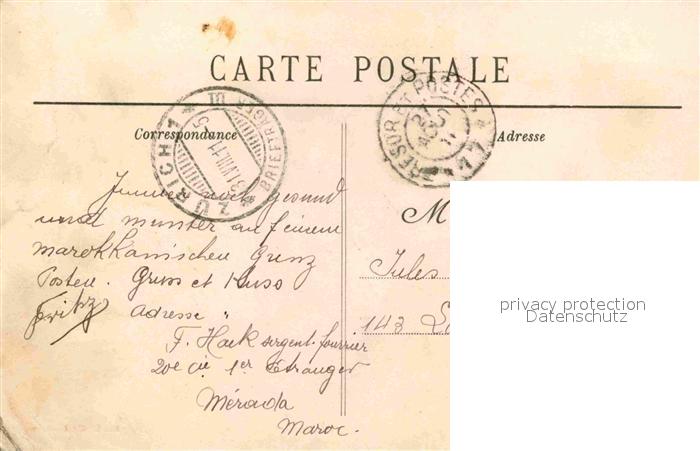 CARTE POSTALE
Correspondance
Adresse
ZÜRICH 1
BRIEFTRÄGER
III
31.VIII.11
TRESOR ET POSTES
27
AOUT
11
Immer noch gesund
und munter auf einem
marokkanischen Grenz
Posten. Gruss et Kuss
Fritz
Adresse "
F. Haek sergent-fourrier
20e Cie 1er Etranger
Mérada
Maroc.
M
Jules
143
privacy protection
Datenschutz